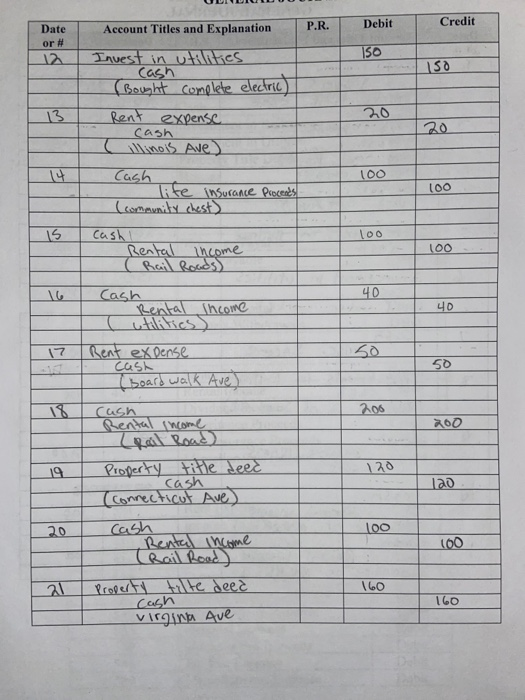 Date or # Account Titles and Explanation P.R. Debit Credit
12 Invest in utilities 150
Cash 150
(Bought complete electric)
13 Rent expense 20
Cash 20
( illinois Ave)
14 Cash 100
life insurance Proceeds 100
(community chest)
15 Cash 100
Rental income 100
( Rail Roads)
16 Cash 40
Rental income 40
( utilities)
17 Rent expense 50
Cash 50
(board walk Ave)
18 Cash 200
Rental income 200
(Rail Road)
19 Property title deed 120
Cash 120
(Connecticut Ave)
20 Cash 100
Rental income 100
(Rail Road)
21 Property tilte deed 160
Cash 160
Virginia Ave